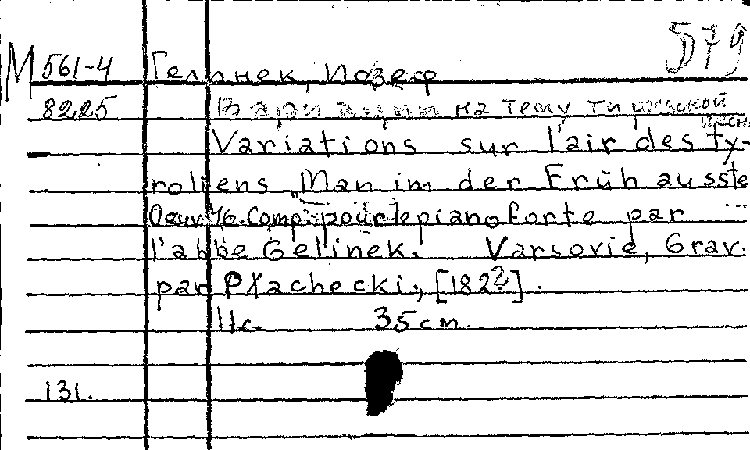 579
М 561-4 Гелинек, Иозеф
8225 Вариации на тему тирольской песни
Variations sur l'air des ty-
roliens „Man im der Früh ausste
Oeuv. 76. Comp. pour le piano forte par ...
l'abbe Gelinek. Varsovie, Grav.
par Płachecki, [182?].
11 с. 35 cm.
131.